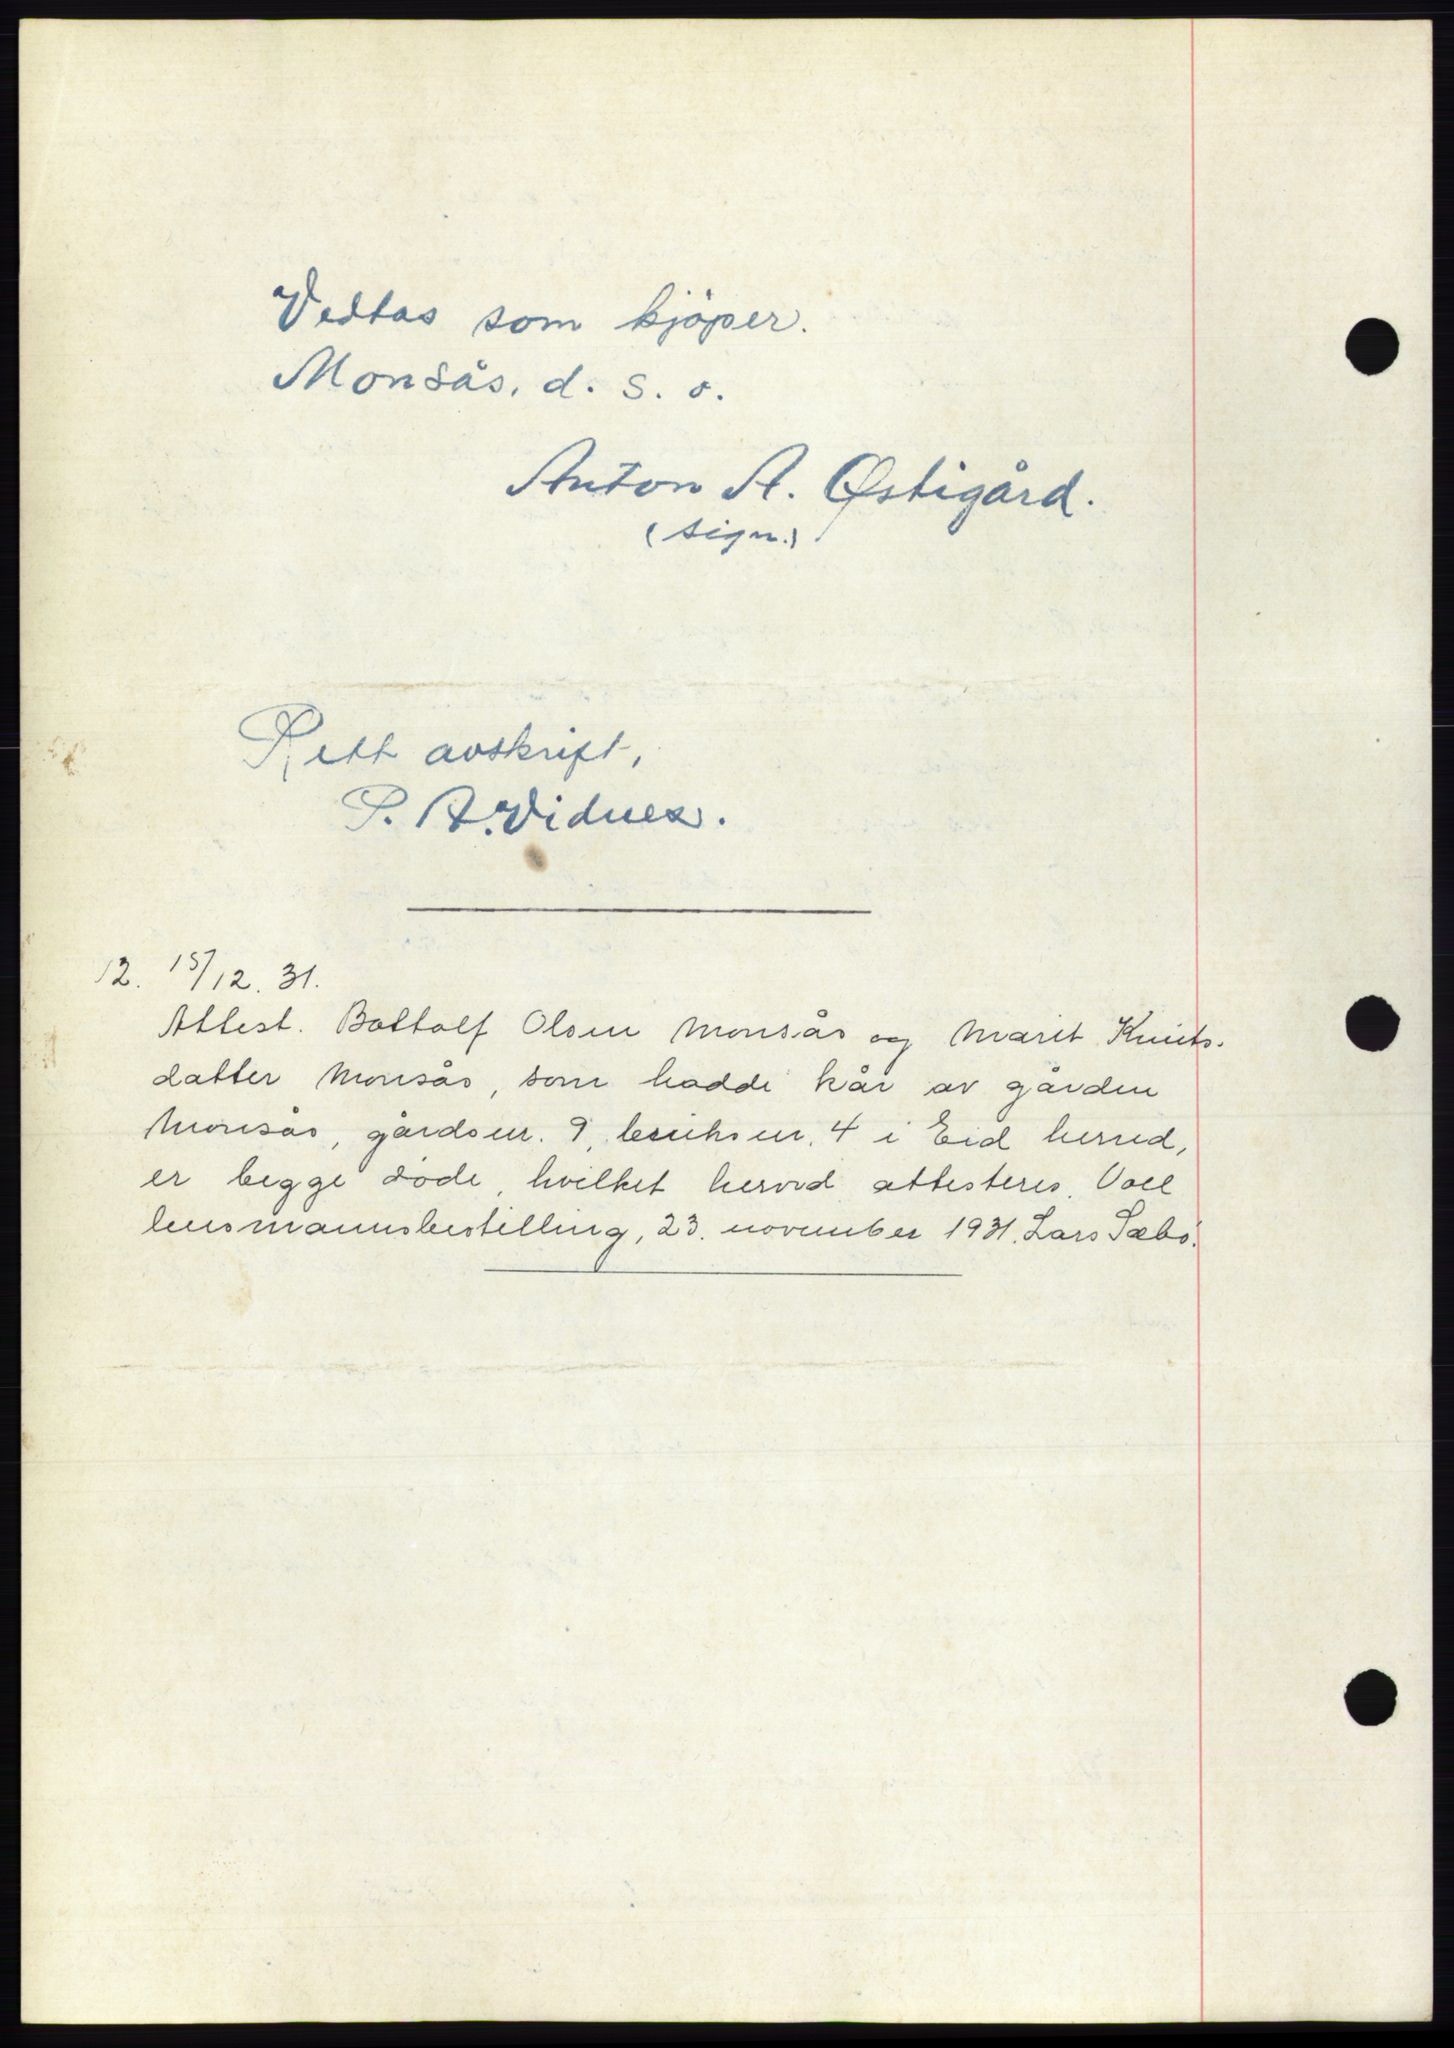 Vedtas som kjöper.
Monsås, d. s. o.
Anton A. Østigård.
(sign.)
Rett avskrift,
P. A. Vidnes.
12. 15/12. 31.
Attest. Bottolf Olsen Monsås og Marit Knuts-
datter Monsås, som hadde kår av gården
Monsås, gårdsnr. 9, bruksnr. 4 i Eid herred,
er begge döde, hvilket herved attesteres. Voll
lensmannsbestilling, 23. november 1931. Lars Sæbö.